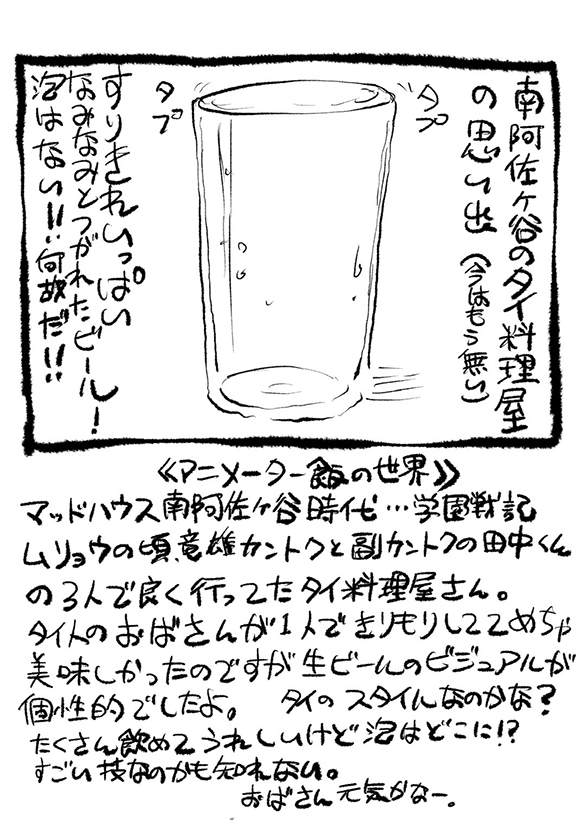 南阿佐ヶ谷のタイ料理屋
の思い出(今はもう無い)
タプ
タプ
すりきれいっぱい
なみなみとつがれたビール!
泡はない!!何故だ!!
《アニメーター飯の世界》
マッドハウス南阿佐ヶ谷時代…学園戦記
ムリョウの頃竜雄カントクと副カントクの田中くん
の3人で良く行ってたタイ料理屋さん。
タイ人のおばさんが1人できりもりしててめちゃ
美味しかったのですが生ビールのビジュアルが
個性的でしたよ。 タイのスタイルなのかな?
たくさん飲めてうれしいけど泡はどこに!?
すごい技なのかも知れない。
おばさん元気かなー。